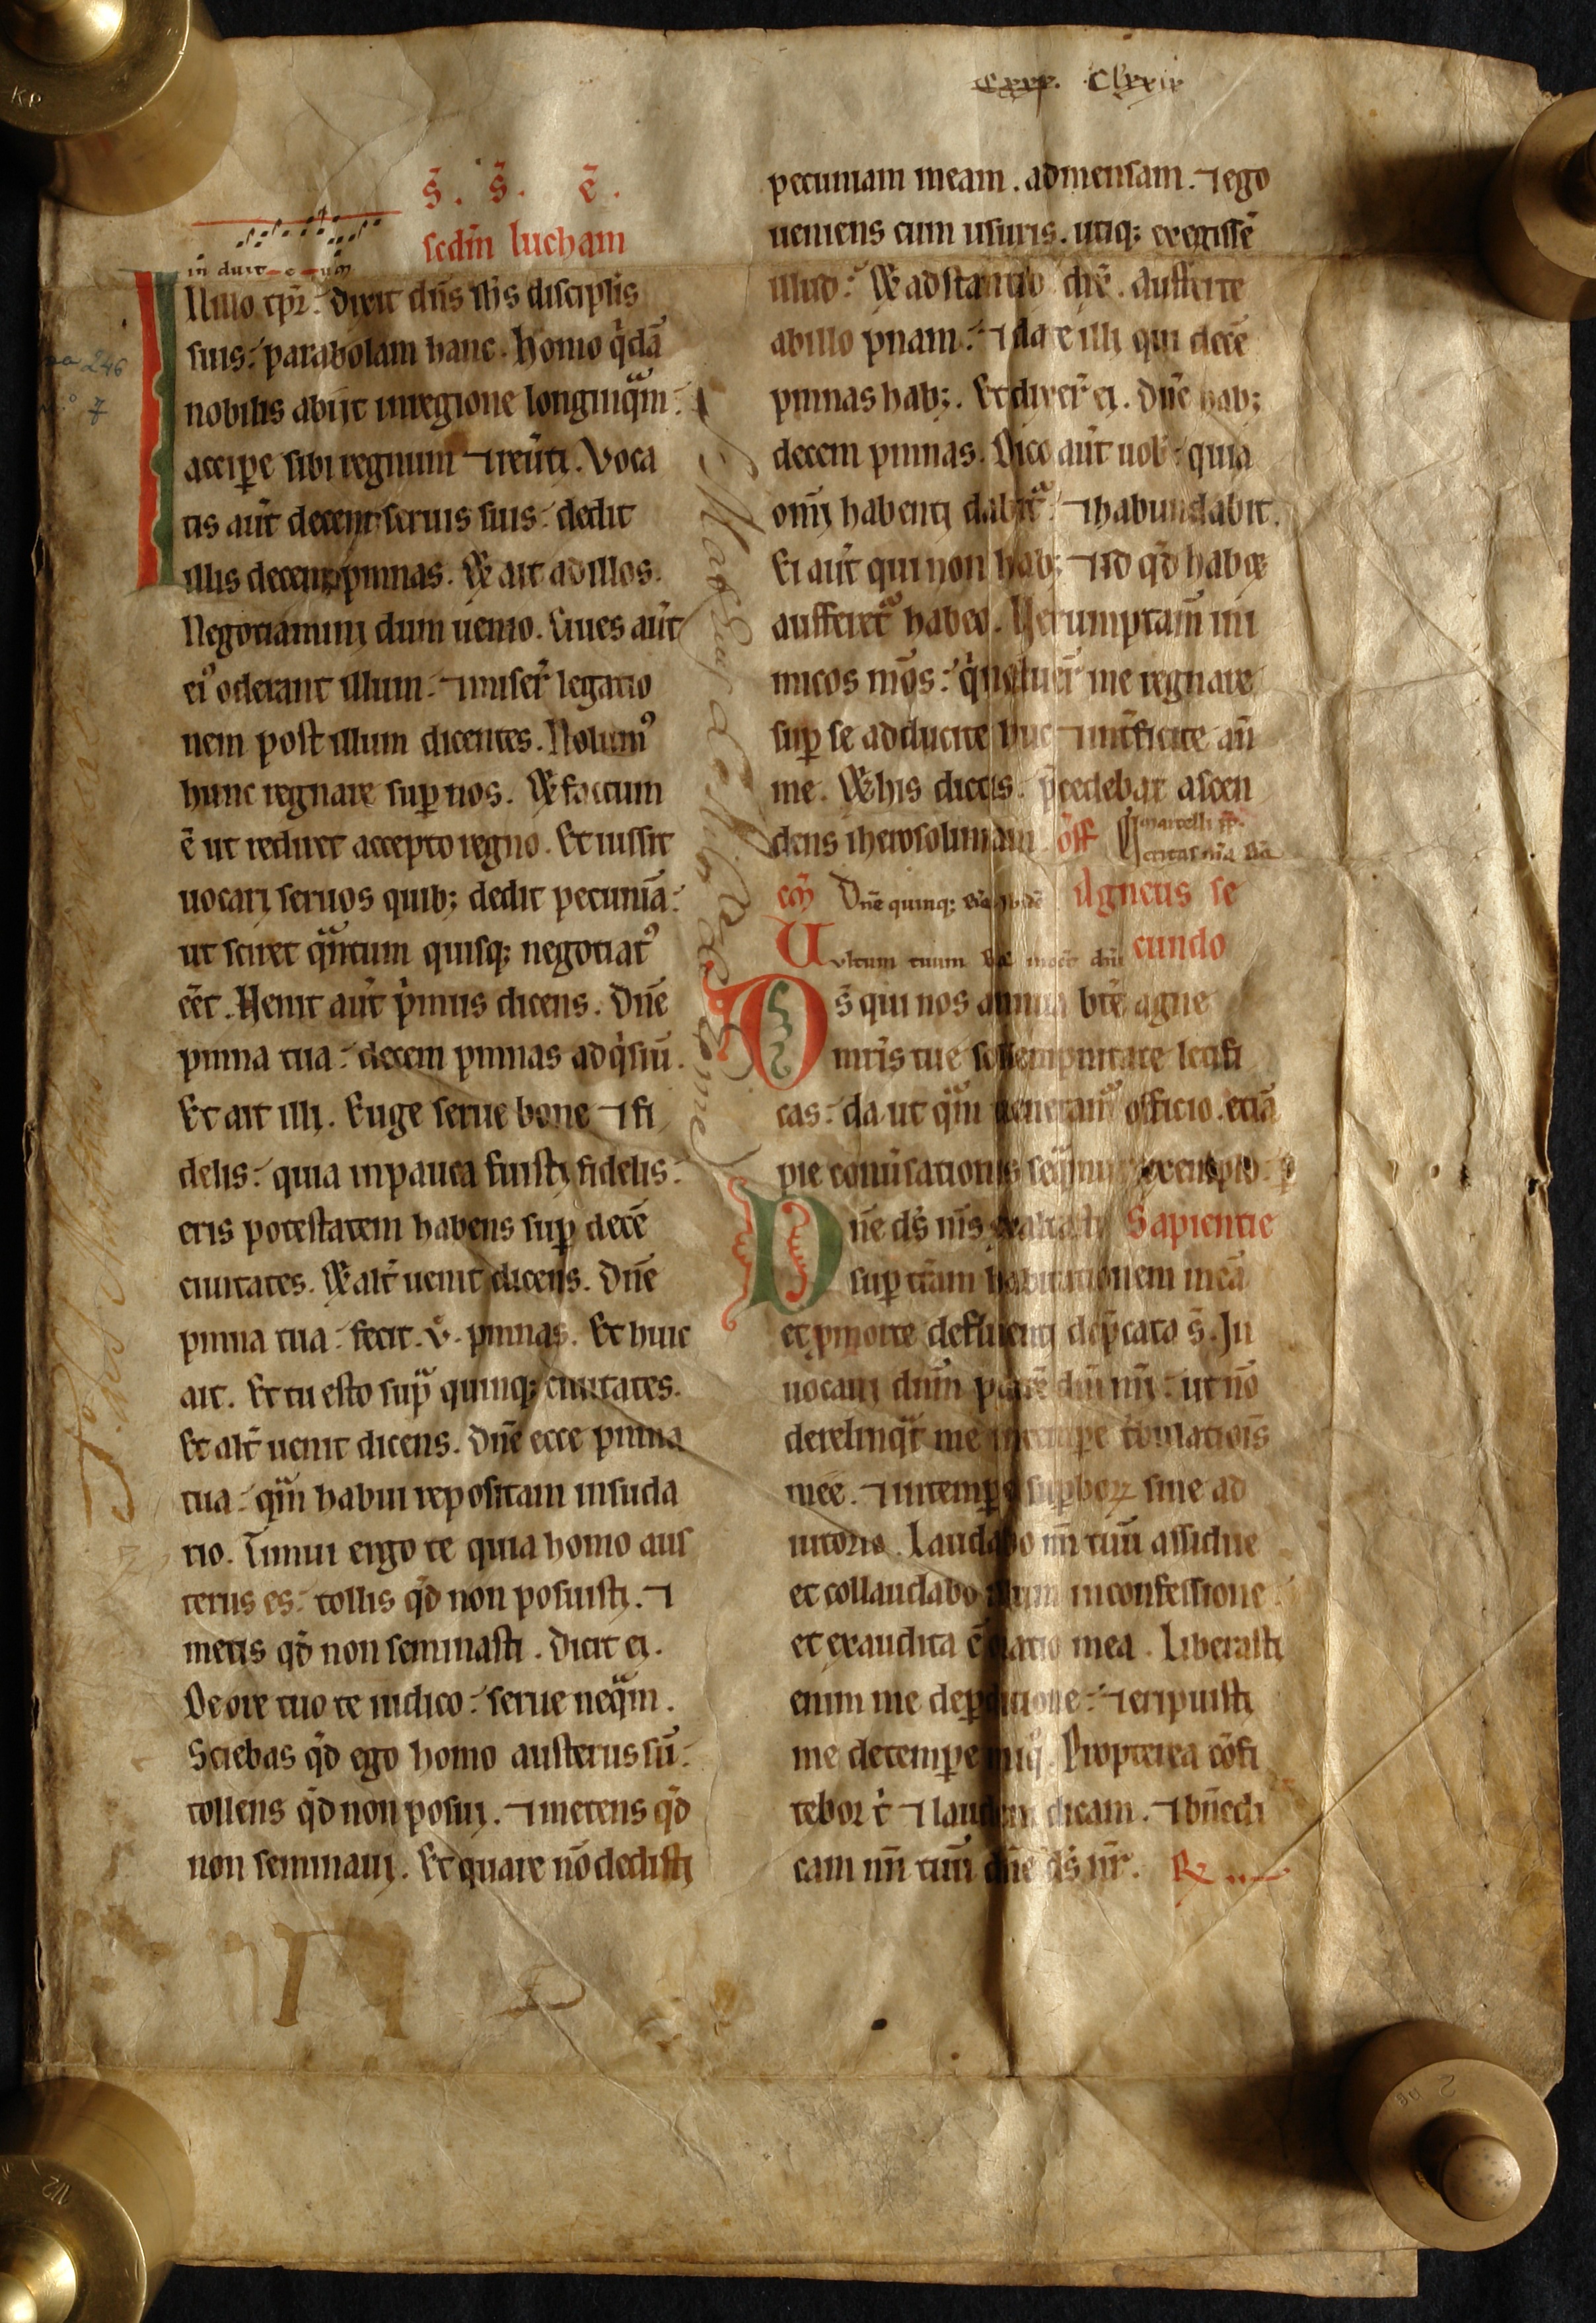 Clxxix
s̄. s̄. ē.
sedm̄ lucham
in duxit e um
IN illo tp̄r. dixit dn̄s ih̄s discipl̄is
suis: parabolam hanc. Homo q̇dā
nobilis abiit in regione longinquam:
accip̄e sibi regnum ⁊ reūti. Voca
tis aūt decem seruis suis: dedit
illis decem pmnas. Et ait ad illos.
Negotiamini dum uenio. Ciues aūt
eiꝰ oderant illum: ⁊ miser̄ legatio
nem post illum dicentes. Nolumꝰ
hunc regnare sup̄ nos. Et factum
ē ut rediret accepto regno. Et iussit
uocari seruos quib; dedit pecuniā:
ut sciret quntum quisq; negotiatꝰ
eēt. Uenit aūt ṗmus dicens. Dn̄e
pmna tua: decem pmnas adq̇siū.
Et ait illi. Euge serue bone ⁊ fi
delis: quia in pauca fuisti fidelis:
eris potestatem habens sup̄ decē
ciuitates. Et alt̄ uenit dicens. Dn̄e
pmna tua: fecit. v. pmnas. Et huic
ait. Et tu esto sup̄ quinq; ciuitates.
Et alt̄ uenit dicens. Dn̄e ecce pmna
tua: qm̄ habui repositam in suda
rio. Timui ergo te quia homo aus
terus es: tollis qd̄ non posuisti. ⁊
metis qd̄ non seminasti. Dicit ei.
De ore tuo te iudico: serue neqm̄.
Sciebas qd̄ ego homo austerus sū:
tollens qd̄ non posui. ⁊ metens qd̄
non seminaui. Et quare nō dedisti
pecuniam meam. ad mensam. ⁊ ego
ueniens cum usuris. utiq; exegissē
illud: Et adstantib dix̄. Aufferte
ab illo pnam: ⁊ date illi qui decē
pmnas hab;. Et dixer̄ ei. Dn̄e hab;
decem pmnas. Dico aūt uob: quia
omī habenti dabit̄: ⁊ habundabit.
Ei aūt qui non hab; ⁊ id qd̄ habꝫ
aufferet̄ hab eo. Uerumptam̄ ini
micos mōs: q̇ noluer̄ me regnare
sup̄ se adducite huc ⁊ int̄ficite an̄
me. Et his dictis: p̄cedebat ascen
dens iherosolimam of̄f marcelli pp̄.
Veritas m̄a
cō Dn̄e quinq; Agnetis se
Vultum tuum dn̄i cundo
Ds̄ qui nos annua bt̄e agne
mr̄is tue sollempnitate letifi
cas: da ut qm̄ ueneramur officio. etiā
pie conūsationis seqmur exemplo. p̄
Dn̄e ds̄ m̄s exaltasti Sapientie
sup̄ t̄ram habitationem meā
et p morte defluenti dep̄cata s̄. In
uocaui dn̄m patrē dn̄i mī: ut nō
derelinqt me in temp̄e tb̄ulatiōis
mee. ⁊ in temp̄e sup̄boꝝ sine ad
iutorio. Laudabo nm̄ tuū assidue
et collaudabo illum in confessione:
et exaudita ē oratio mea. Liberasti
enim me de p̄ditione: ⁊ eripuisti
me de temp̄e iniq. Propterea cōfi
tebor t̄ ⁊ laudem dicam. ⁊ bn̄edi
cam nm̄ tuū dn̄e ds̄ nr̄. ℞